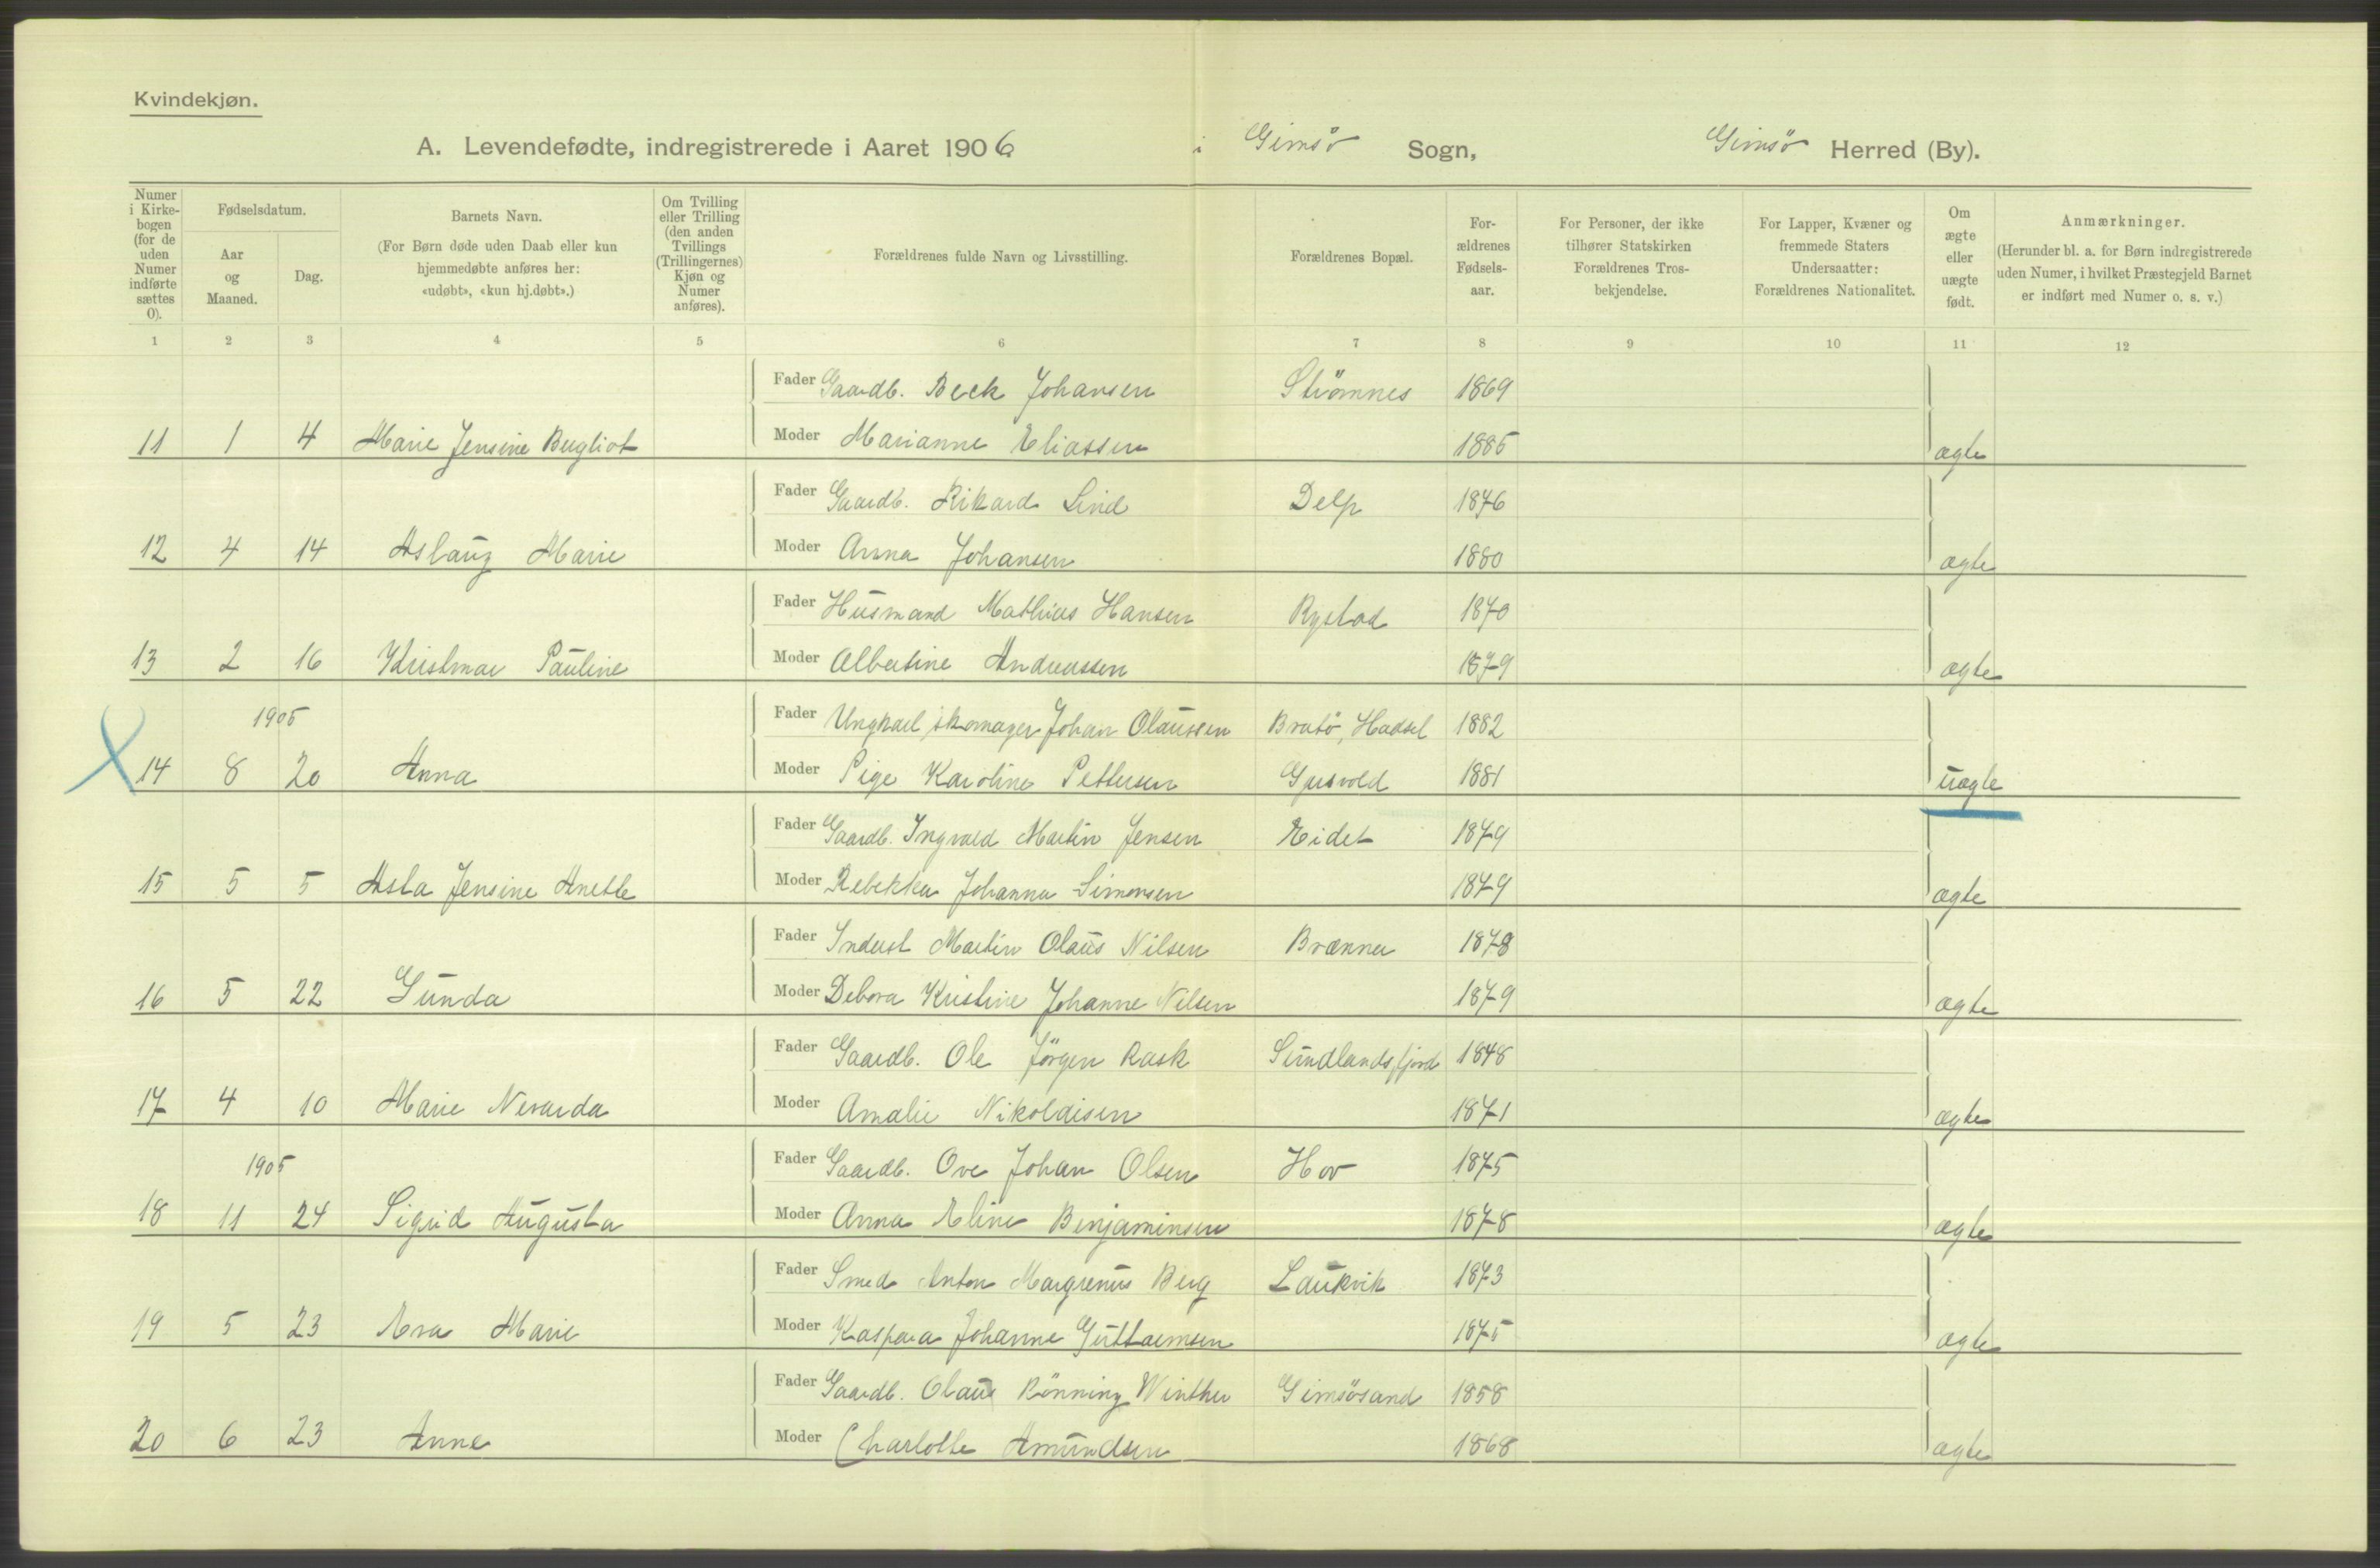 Kvindekjøn.
A. Levendefødte, indregistrerede i Aaret 1906 i Gimsö Sogn, Gimsö Herred (By).
Numer i Kirkebogen (for de uden Numer indførte sættes 0).
Fødselsdatum.
Aar og Maaned.
Dag.
Barnets Navn.
(For Børn døde uden Daab eller kun hjemmedøbte anføres her: «udøbt», «kun hj.døbt».)
Om Tvilling eller Trilling (den anden Tvillings (Trillingernes) Kjøn og Numer anføres).
Forældrenes fulde Navn og Livsstilling.
Forældrenes Bopæl.
For-ældrenes Fødsels-aar.
For Personer, der ikke tilhører Statskirken Forældrenes Tros-bekjendelse.
For Lapper, Kvæner og fremmede Staters Undersaatter: Forældrenes Nationalitet.
Om ægte eller uægte født.
Anmærkninger.
(Herunder bl. a. for Børn indregistrerede uden Numer, i hvilket Præstegjeld Barnet er indført med Numer o. s. v.)
1 2 3 4 5 6 7 8 9 10 11 12
Fader Gaardb. Beck Johansen Strömnes 1869
11 1 4 Marie Jensine Bergliot Moder Marianne Eliassen 1885 ægte
Fader Gaardb. Rikard Lind Delp 1876
12 4 14 Aslaug Marie Moder Anna Johansen 1880 ægte
Fader Husmand Mathias Hansen Rystad 1870
13 2 16 Kristmar Pauline Moder Albertine Andreassen 1879 ægte
1905 Fader Ungkarl skomager Johan Olaussen Bratö, Hadsel 1882
14 8 20 Anna Moder Pige Karoline Pettersen Gjusvold 1881 uægte
Fader Gaardb. Ingvald Martin Jensen Eidet 1879
15 5 5 Asta Jensine Anette Moder Rebekka Johanna Simonsen 1879 ægte
Fader Inderst Martin Olaus Nilsen Brænna 1878
16 5 22 Gunda Moder Debora Kristine Johanne Nilsen 1879 ægte
Fader Gaardb. Ole Jörgen Rask Sundlandsfjord 1848
17 4 10 Marie Nevarda Moder Amalie Nikolaisen 1871 ægte
1905 Fader Gaardb. Ove Johan Olsen Hov 1875
18 11 24 Sigrid Augusta Moder Anna Eline Benjaminsen 1878 ægte
Fader Smed Anton Margrenus Berg Laukvik 1873
19 5 23 Eva Marie Moder Kaspara Johanne Guttormsen 1875 ægte
Fader Gaardb. Olaus Rönning Winther Gimsösand 1858
20 6 23 Anne Moder Charlotte Amundsen 1868 ægte